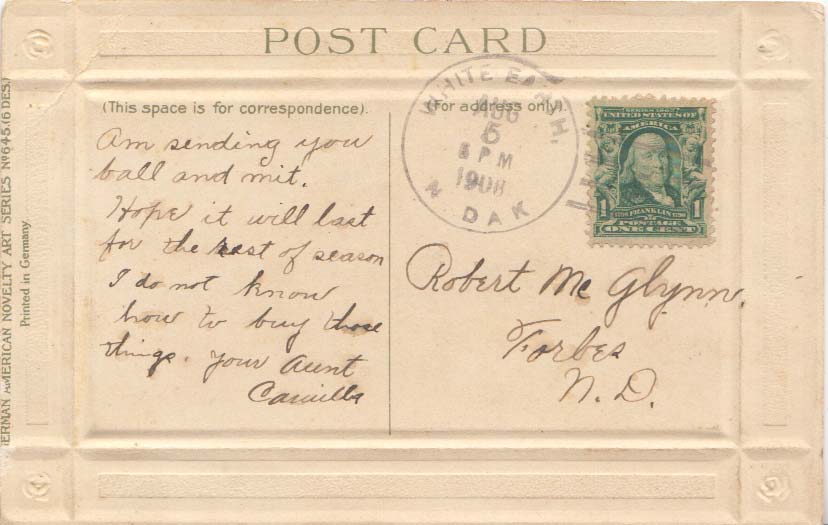 POST CARD
(This space is for correspondence).
(For address only).
Am sending you
ball and mit.
Hope it will last
for the rest of season
I do not know
how to buy those
things. Your Aunt
Camilla
WHITE EARTH,
AUG
5
PM
1908
N. DAK
SERIES 1902
UNITED STATES OF
AMERICA
1 1
FRANKLIN
POSTAGE
ONE CENT
Robert Mc Glynn.
Forbes
N. D.
GERMAN AMERICAN NOVELTY ART SERIES No 645. (6 DES.)
Printed in Germany